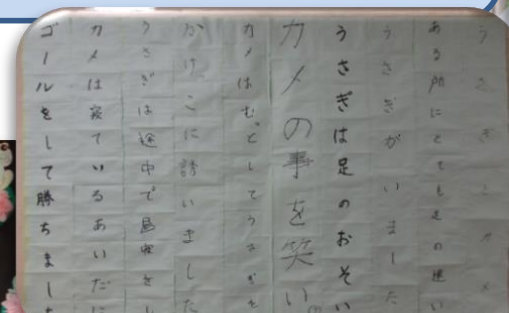 うさぎとカメ
ある所にとても足の速い
うさぎがいました
うさぎは足のおそい
カメの事を笑い
カメはむっとしてうさぎを
かけっこに誘いました
うさぎは途中で昼寝をし
カメは寝ているあいだに
ゴールをして勝ちまし